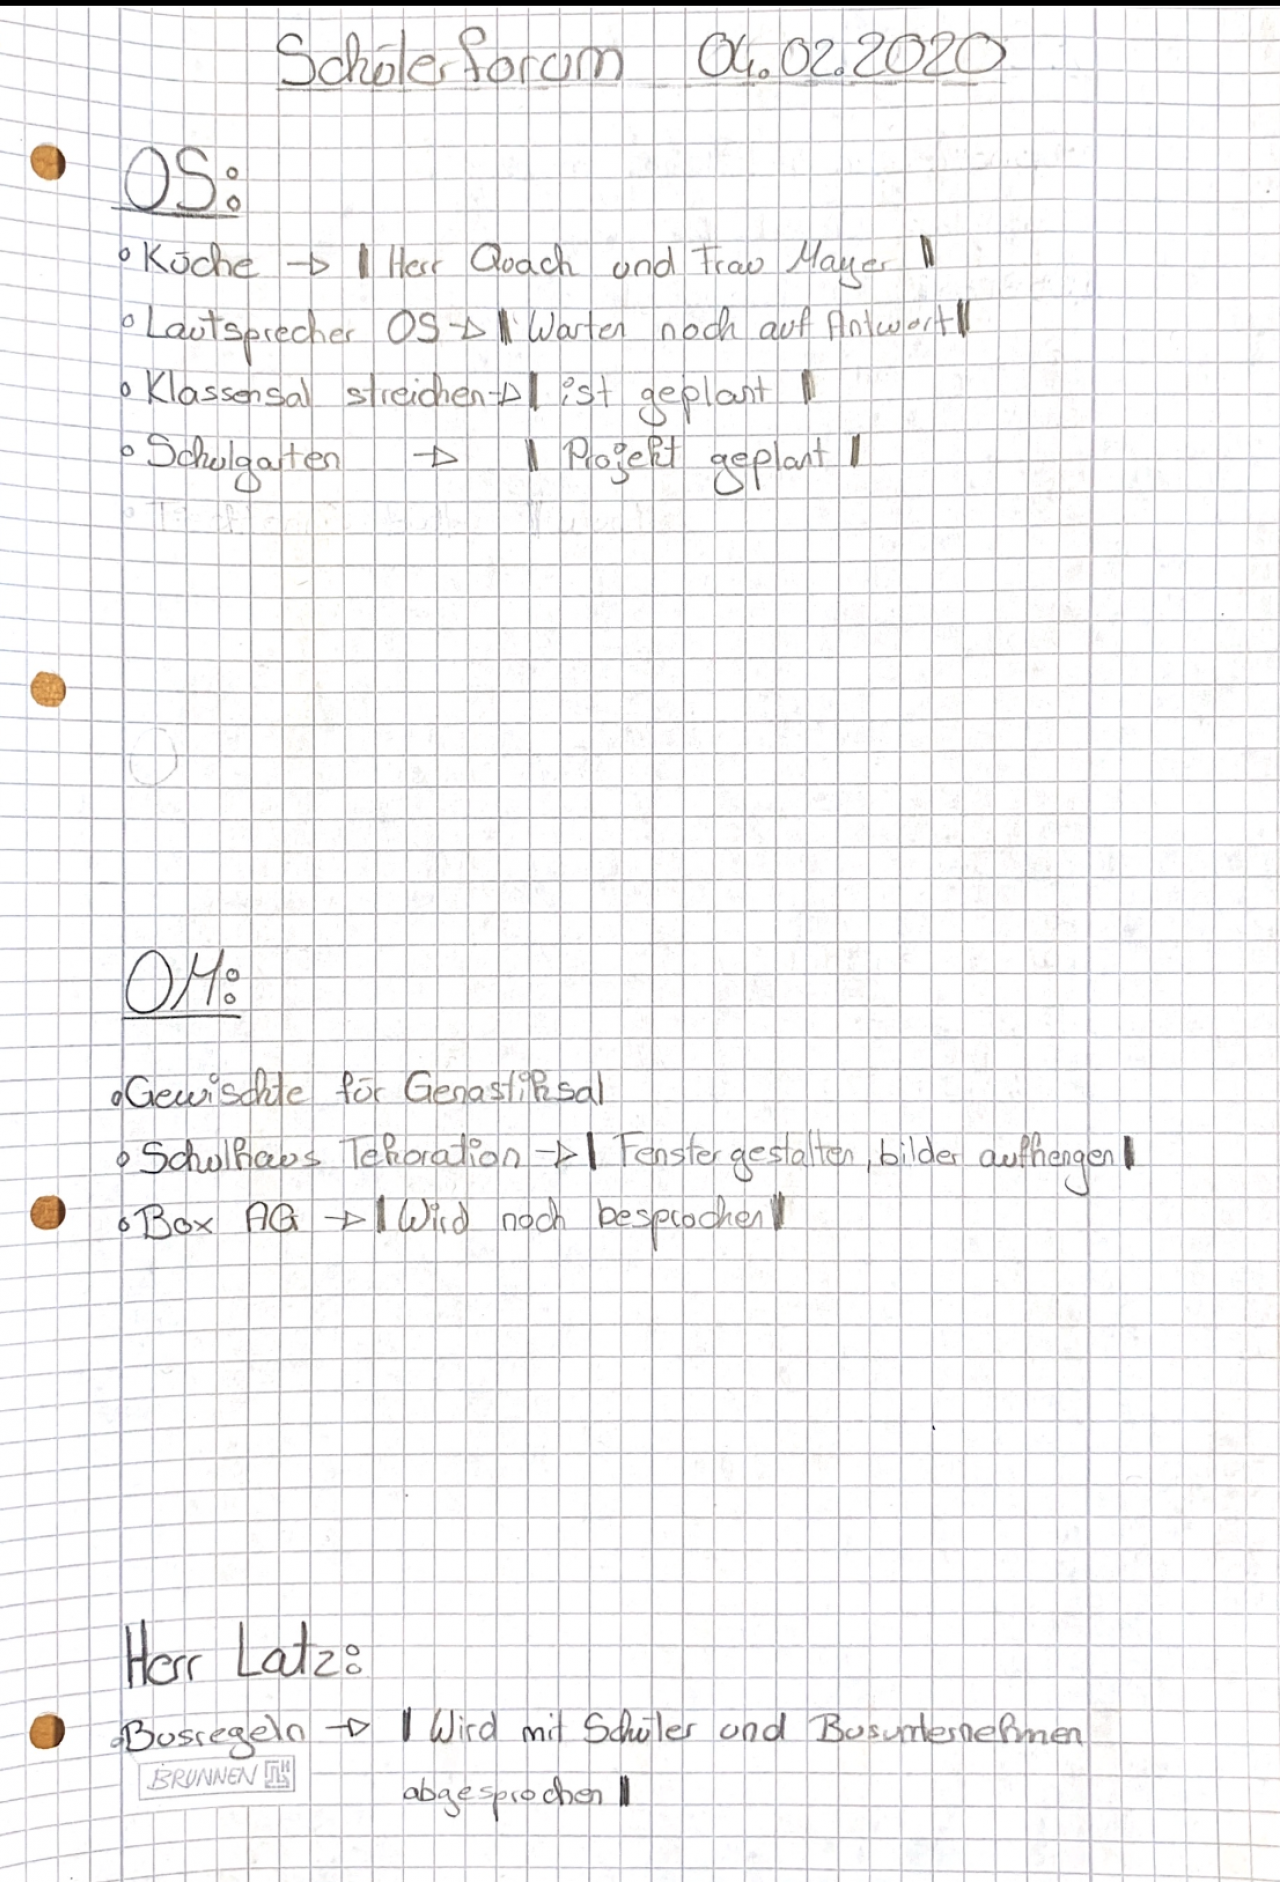 Schülerforum 04.02.2020
OS:
° Küche → | Herr Quach und Frau Mayer |
° Lautsprecher OS → | Warten noch auf Antwort |
° Klassensal streichen → | ist geplant |
° Schulgarten → | Projekt geplant |
OM:
° Gewischte für Genastiksal
° Schulhaus Tekoration → | Fenster gestalten, bilder aufhengen |
° Box AG → | Wird noch besprochen |
Herr Latz:
° Busregeln → | Wird mit Schüler und Busunternehmen
BRUNNEN
abgesprochen |